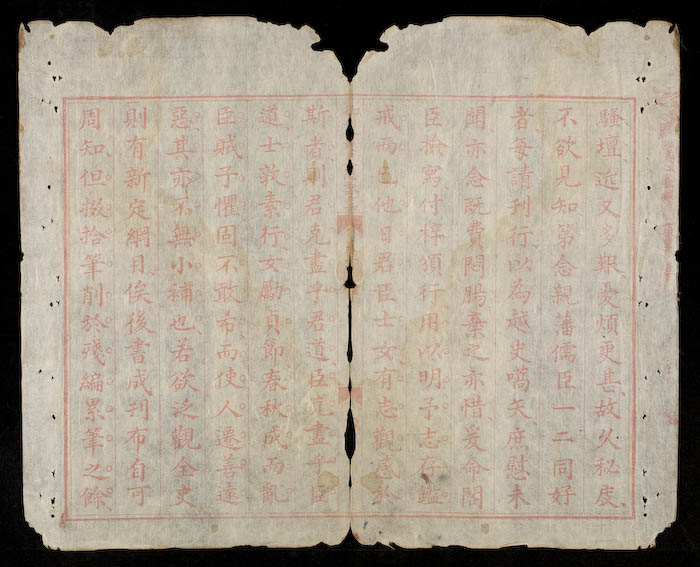 騷壇近又多艱憂煩更甚故久秘庋
不欲見知第念親藩儒臣一二同好
者每請刊行以為越史嚆矢庶慰未
聞亦念既費悶腸棄之亦惜爰命閣
臣撿寫付梓須行用以明予志存鑑
戒而已他日君臣士女有志觀感於
斯者則君克盡乎君道臣克盡乎臣
道士敦素行女勵貞節春秋成而亂
臣賊子懼固不敢希而使人遷善遠
惡其亦不無小補也若欲泛觀全史
則有新定綱目俟後書成刊布自可
周知但掇拾筆削於殘編累筆之餘